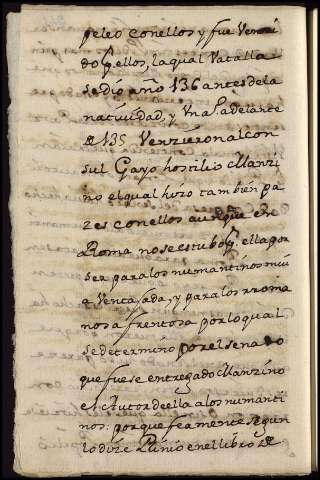 peleo conellos y fue Venci
do p. ellos, la qual Vatalla
se dio año 136 antes de la
natiuidad, y Vn a. adelante
de 135 Venzieron al con
sul Gayo hostilio Manzi
no el qual hizo tambien pa
zes conellos aunque en
Roma no se estubo p. ella por
ser para los numantinos mui
a Ventajada, y para los rroma
nos a frentosa por lo qual
se determino por el senado
que fuese entregado Manzino
el Autor de ella a los numanti
nos: porque feamente segun
lo dize Plinio en el libro de